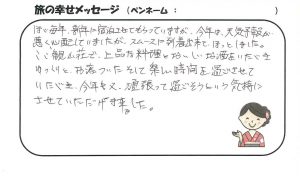 旅の幸せメッセージ (ペンネーム : )
ほぼ毎年、新年に宿泊させてもらっていますが、今年は、天気予報が
悪く心配していましたが、スムーズに到着出来てほっとしました。
ここ観山荘で、上品な料理とおいしい地酒をいただき
ゆっくりと、落ちついたそして楽しい時間を過ごさせて
いただき、今年も又、頑張って過ごそうという気持に
させていただけました。